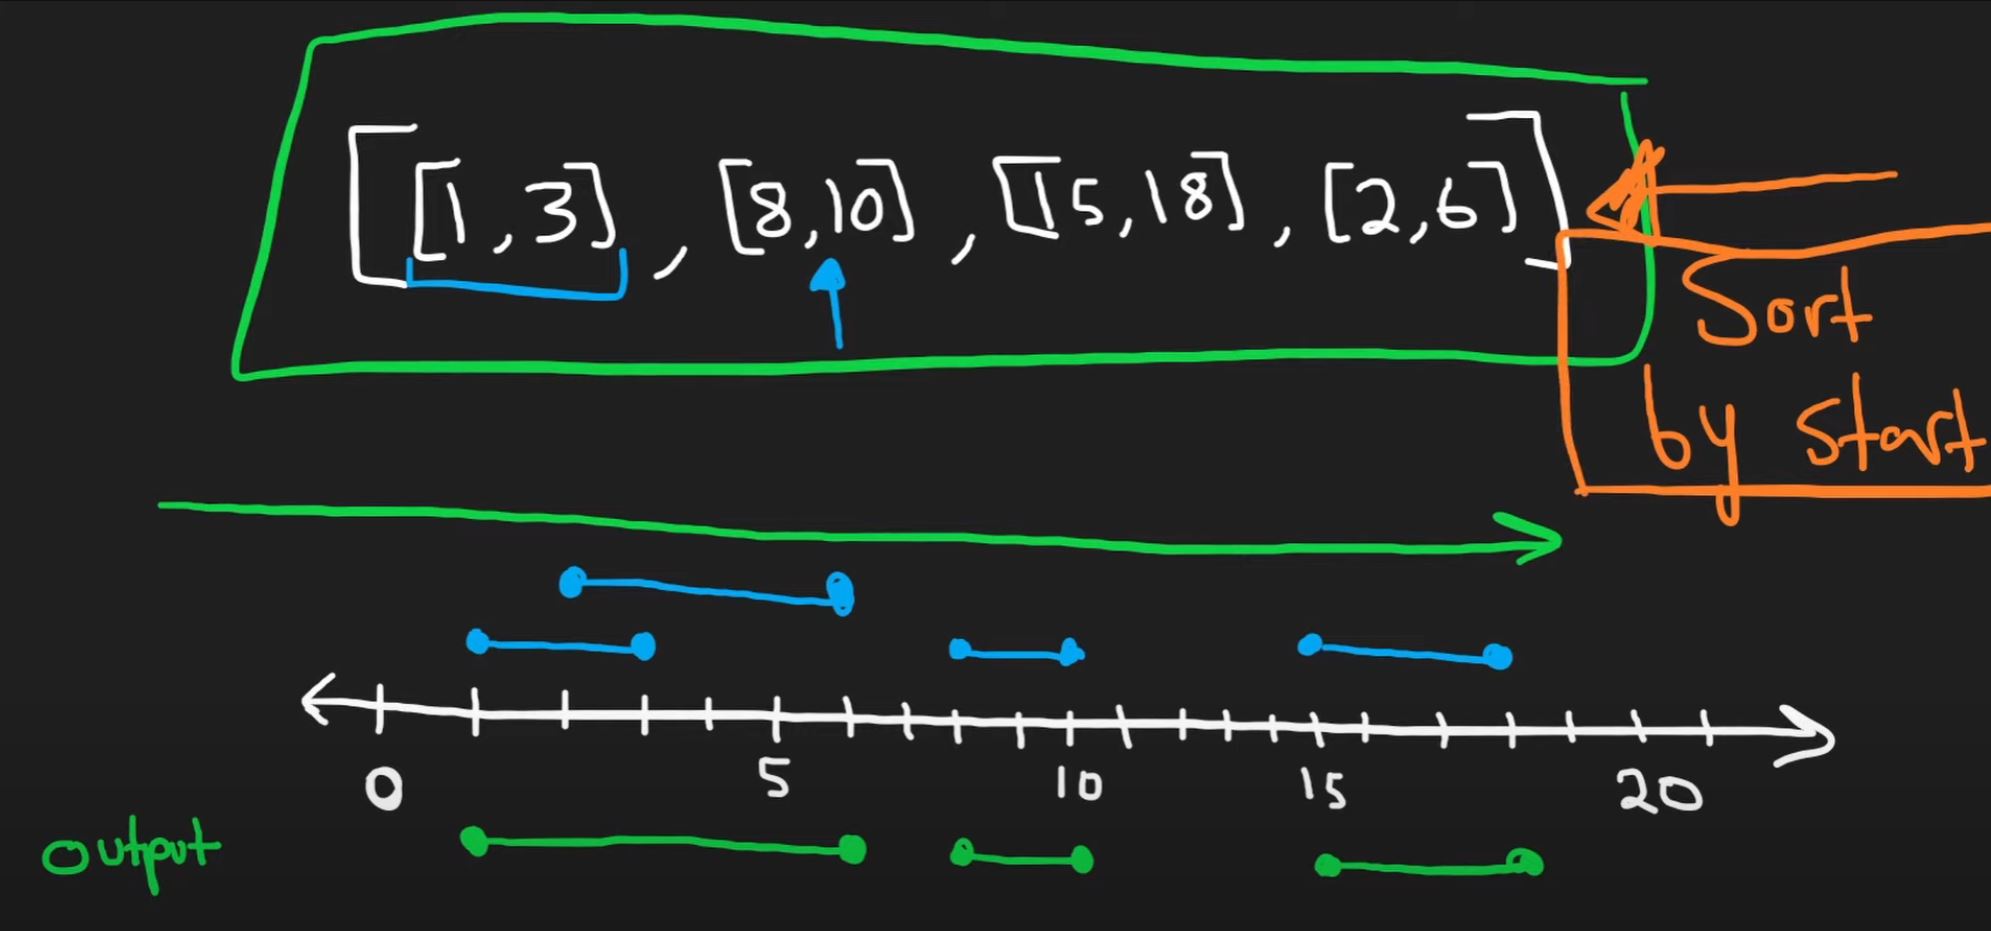 [[1,3], [8,10], [15,18], [2,6]]
Sort
by Start
0 5 10 15 20
output